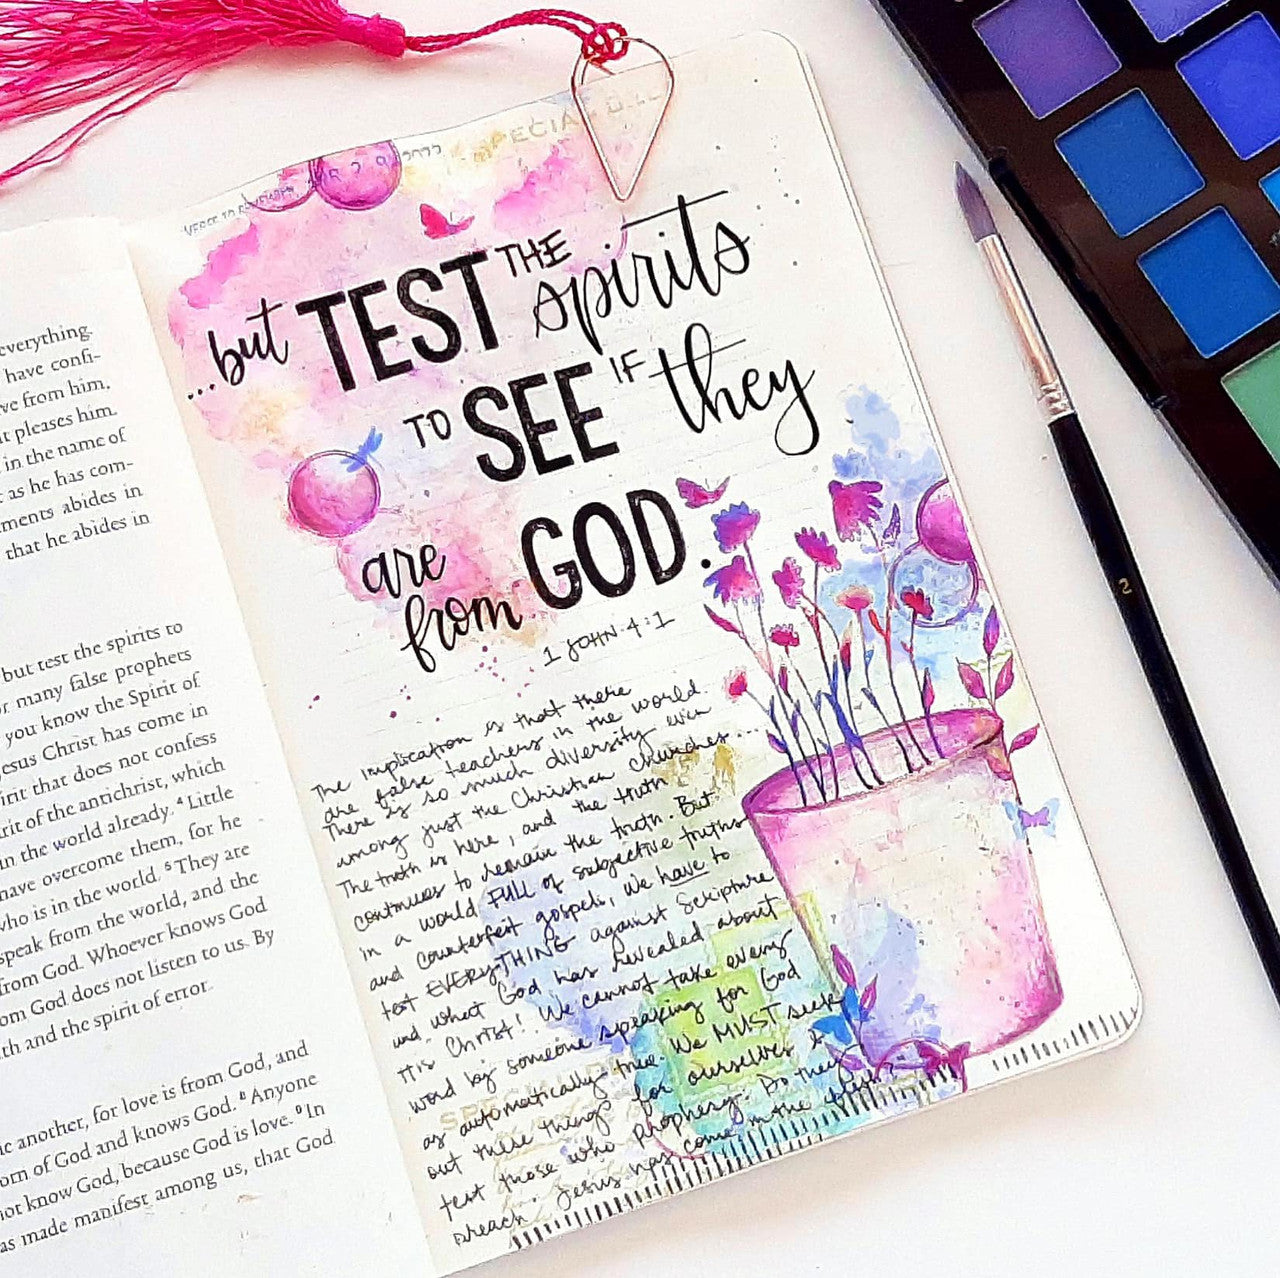 everything.
have confi-
ve from him,
t pleases him.
in the name of
as he has com-
ments abides in
that he abides in
but test the spirits to
r many false prophets
you know the Spirit of
esus Christ has come in
irit that does not confess
rit of the antichrist, which
in the world already. 4 Little
have overcome them, for he
who is in the world. 5 They are
speak from the world, and the
from God. Whoever knows God
om God does not listen to us. By
th and the spirit of error.
ic another, for love is from God, and
orn of God and knows God. 8 Anyone
not know God, because God is love. 9 In
as made manifest among us, that God
VERSE TO REMEMBER
SPECIAL
...but TEST THE spirits
TO SEE IF they
are from GOD.
1 JOHN 4:1
The implication is that there
are false teachers in the world.
There is so much diversity even
among just the Christian churches...
The truth is here, and the truth
continues to remain the truth. But
in a world FULL of subjective truths
and counterfeit gospels, we have to
test EVERYTHING against Scripture
and what God has revealed about
it is Christ! We cannot take every
word by someone speaking for God
as automatically true. We MUST seek
out these things for ourselves &
test those who prophecy. Do they
preach Jesus has come in the flesh?
2